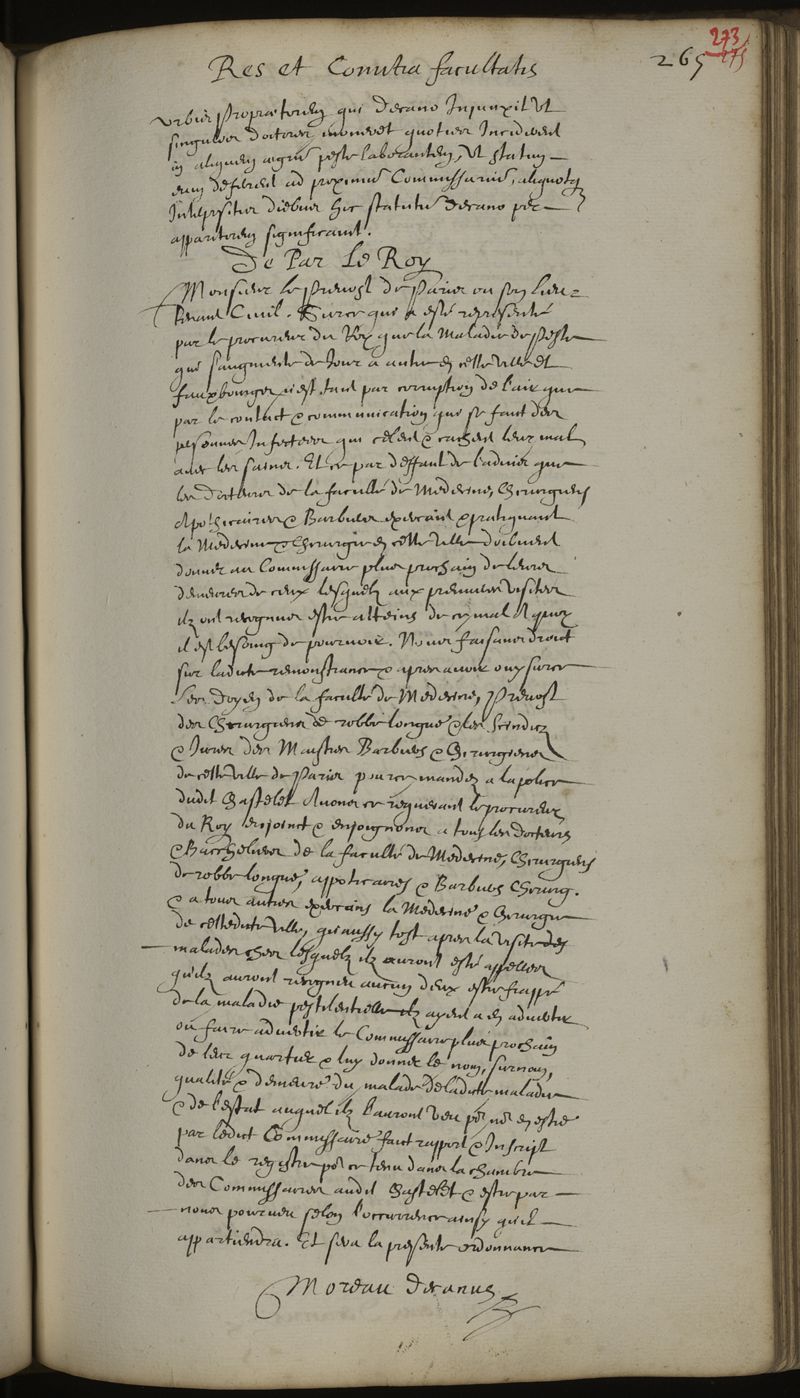 Res et Comitia facultatis
265
273
275
urbis Propraetorem qui decano Injunxit Ut
singulos doctores moneret quoties Incident
in aliquem aegrum peste laborantem, Ut statim
eum deferent ad proximum Commissarium, aliquotq
Interpositis diebus hic statutum decano per
apparitorem significavit.
De Par Le Roy
Monsieur le Prevost de Paris ou son Lieu-
tenant Civil. Surce qui a esté representé
par le procureur du Roy que la Maladie de Peste
qui s'augmente de Jour a autre en cette ville et
fauxbourgs, n'est tant par corruption de l'air que
par le contact & communication qui se faut des
personnes Infectees qui celent & cachent leur mal
avec les saines. Et ce par deffaut de l'advis que
les docteurs de la faculté de Medecine, Chirurgiens
Apothicaires & Barbiers exercans & pratiquant
la Medecine & Chirurgie en cette ville doibvent
donner au Commissaire plus prochain de leurs
demeures de ceux lesquelz aux premieres visites
ilz ont recognus estre atteins de ce mal A quoy
il est besoing de pourvoir. Nous faisans droict
sur ladicte remonstrance & apres avoir ouy surce
les doyen de la faculté de Medecine, Prevost
des Chirurgiens de robbe longue & les Scindicz
& Jurez des Maistres Barbiers & Chirurgiens
de cette ville de Paris pource mandez a la police
dudit Chastelet Avons ce requerant le procureur
du Roy enjoinct & enjoignons a tous les docteurs
& Bacheliers de la faculté de Medecine, Chirurgiens
de robbe longue, appoticaires & Barbiers Chirurg.
& a tous autres exercans la Medecine & Chirurgie
de cettedicte ville, qu'aussy tost apres la visite des
malades chez lesquelz ilz auront esté appellez
qu'ilz auront recogneu aucun d'eux estre frappé
de la maladie pestilentielle ilz ayent a en advertir
ou faire advertir le Commissaire plus prochain
de leur quartier & luy donner le nom, surnom,
qualité & demeure du malade de ladicte maladie
& de l'estat auquel ilz l'auront veu pour en estre
par ledict Commissaire faict rapport & Inscript
dans le registre pour ce tenu dans la chambre
des Commissaires audit Chastelet & estre par
nous pourveu selon l'occurrence ainsy qu'il
appartiendra. Et sera la presente ordonnance
Moreau decanus